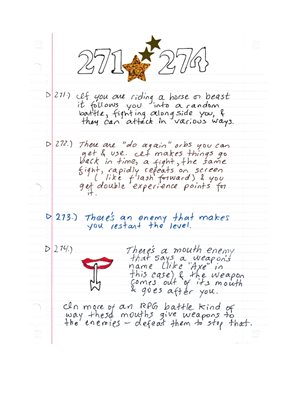 271 274
271.) If you are riding a horse or beast
it follows you into a random
battle, fighting alongside you, &
they can attack in various ways.
272.) There are "do again" orbs you can
get & use. It makes things go
back in time, a fight, the same
fight, rapidly repeats on screen
(like flash forward) & you
get double experience points for
it.
273.) There's an enemy that makes
you restart the level.
274.) There's a mouth enemy
that says a weapon's
name (like "Axe" in
this case) & the weapon
comes out of its mouth
& goes after you.
In more of an RPG battle kind of
way these mouths give weapons to
the enemies - defeat them to stop that.